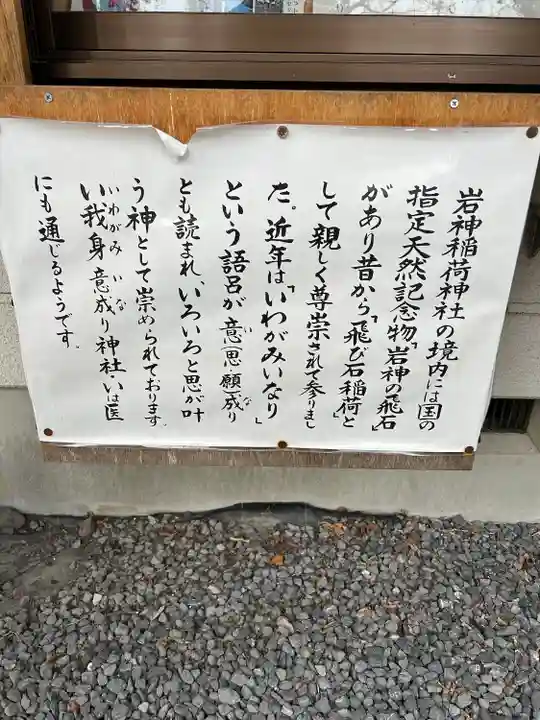 岩神稲荷神社の境内には国の
指定天然記念物「岩神の飛石」
があり昔から「飛び石稲荷」と
して親しく尊崇されて参りまし
た。近年は「いわがみいなり」
という語呂が意(思・願)成り
な
とも読まれ、いろいろと思が叶
う神として崇められております。
い我身意成り神社・いは医
いわがみいな
にも通じるようです。